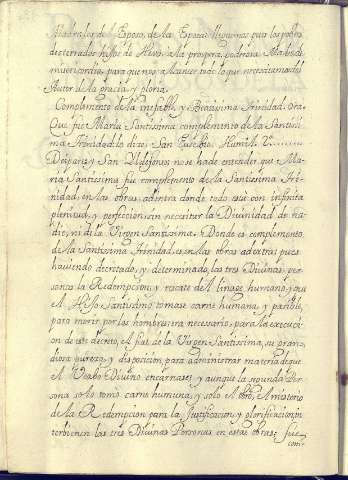 Madre, hija del Esposo, de los Esposos Altissimos para los pobres
desterrados hijos de Heva, a la prospera, poderosa Madre de
misericordia, para que nos alcance todo lo que necesitamos del
Autor de la gracia, y gloria.
Complemento de la inefable, y Beatissima Trinidad. Ora
Que fue Maria Santissima complemento de la Santissi
ma Trinidad: lo dize San Eusebio, Homil. 2
Deipara: y San Ildefonso: no se hade entender que Ma
ria Santissima fue complemento de la Santissima Tri
nidad, en las obras adentra donde todo està con infinita
plenitud, y perfeccion, sin necesitar la Divinidad de na
die, ni de la Virgen Santissima. Donde es complemento
de la Santissima Trinidad, es en las obras adextra: pues
haviendo decretado, y determinado, las tres Divinas per
sonas la Redempcion, y rescate del linage humano, y que
el Hijo Santissimo tomase carne humana, y pasible,
para morir por los hombres: era necesario, para la execucion
de este decreto, el fiat de la Virgen Santissima, su gran
diosa pureza, y disposicion, para administrar materia de que
el Verbo Divino encarnase: y aunque la segunda Per
sona solo tomo carne humana, y solo el obró, el misterio
de la Redempcion, para la Justificacion, y glorificacion, in
tervienen las tres Divinas Personas en estas obras: fue
com-